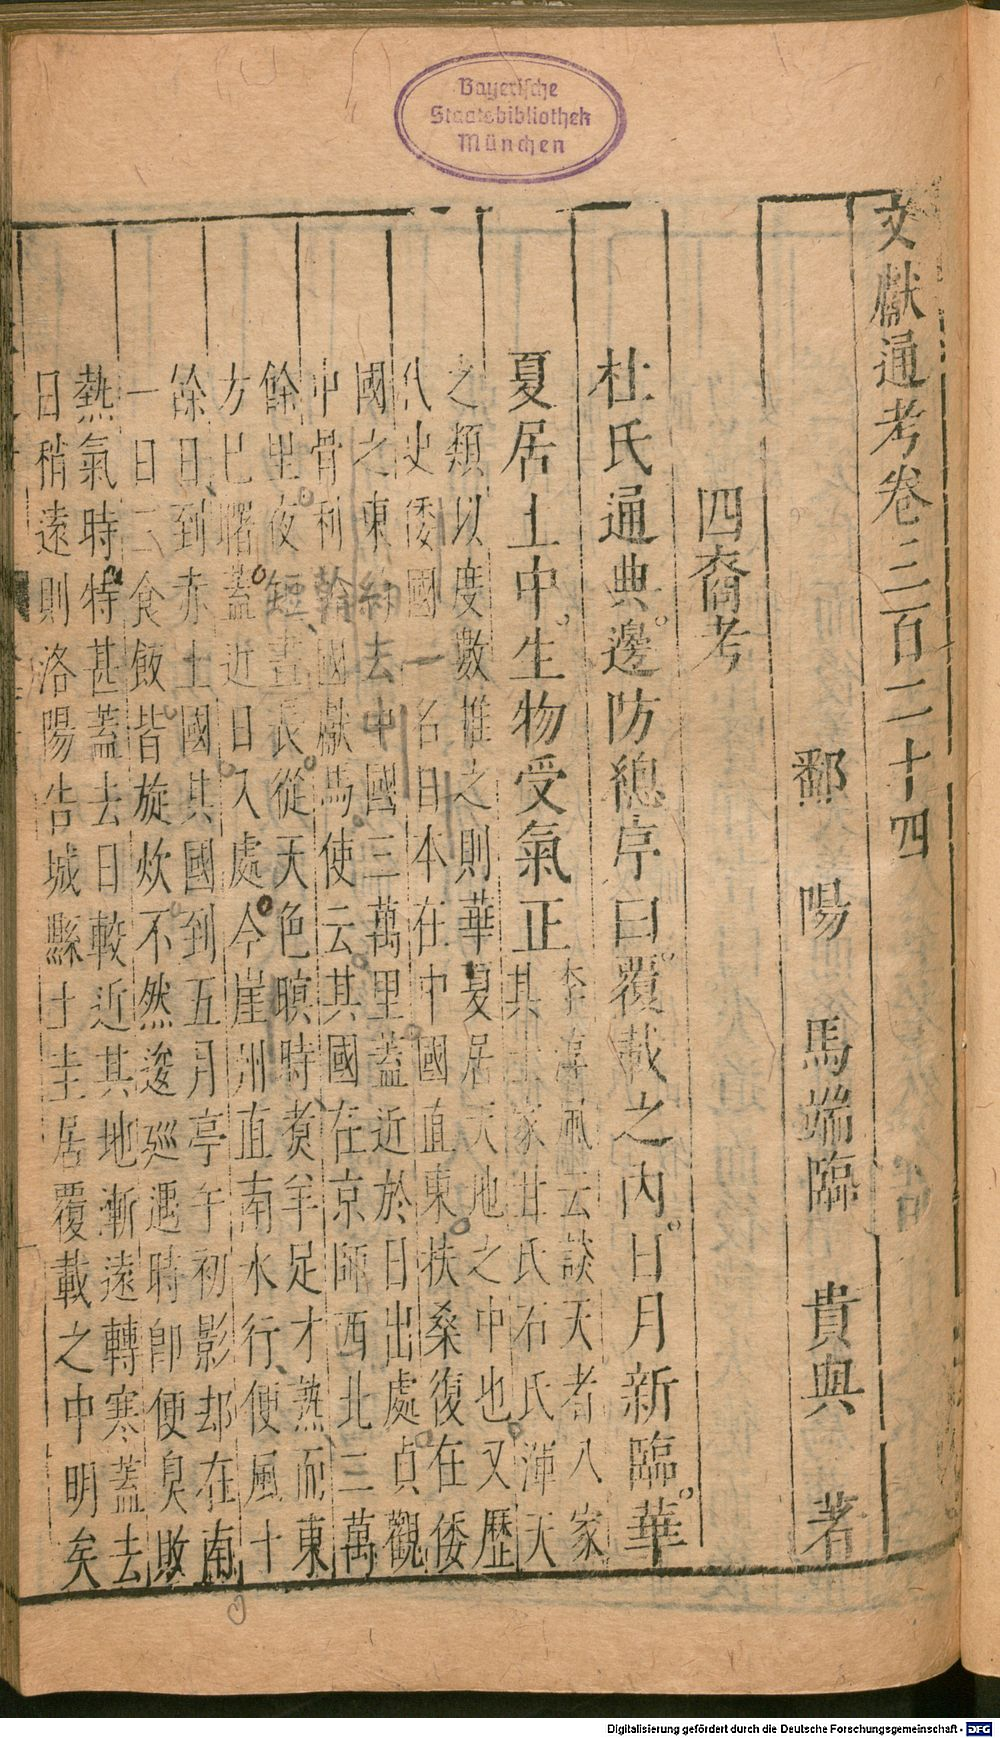 Bayerische
Staatsbibliothek
München
文獻通考卷三百二十四
鄱陽馬端臨貴與著
四裔考
杜氏通典邊防總序曰覆載之內日月新臨華
夏居土中生物受氣正
李淳風云談天者八家
其七家甘氏石氏渾天
之類以度數推之則華夏居天地之中也又歷
代史倭國一名日本在中國直東扶桑復在倭
國之東約去中國三萬里蓋近於日出處貞觀
中骨利幹國獻馬使云其國在京師西北三萬
餘里夜短晝長從天色暝時煑羊足才熟而東
方已曙蓋近日入處今崖州直南水行便風十
餘日到赤土國其國到五月亭午初影却在南
一日三食飯皆旋炊不然逡廵遇時卽便臭敗
熱氣時特甚蓋去日較近其地漸遠轉寒蓋去
日稍遠則洛陽告城縣土圭居覆載之中明矣
Digitalisierung gefördert durch die Deutsche Forschungsgemeinschaft - DFG